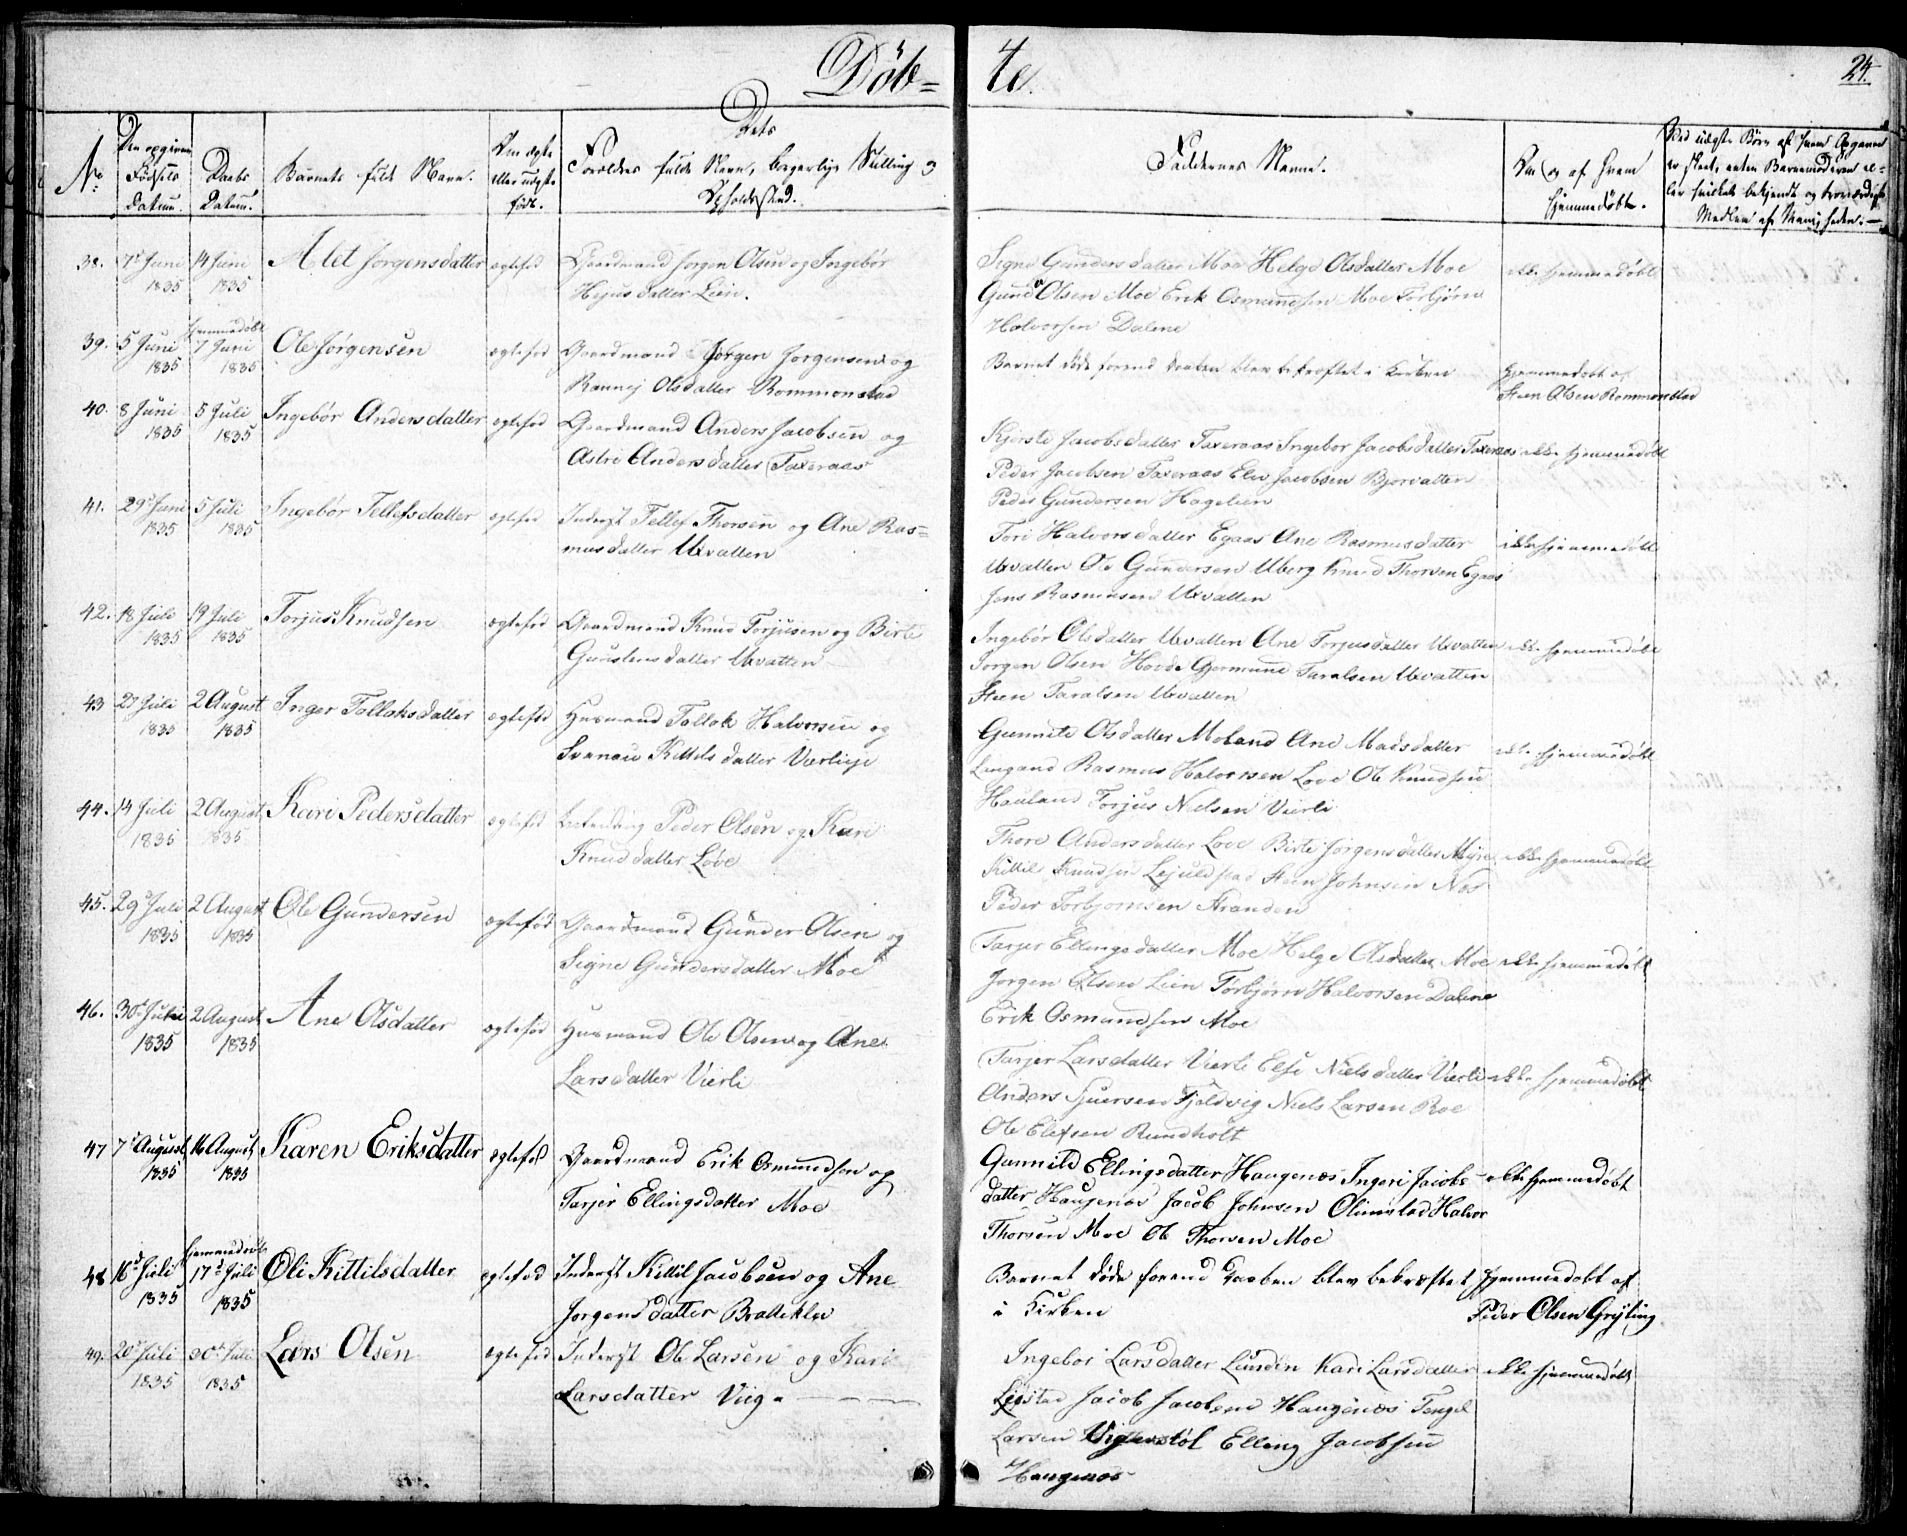 Döb= te.
24.
No.
Den opgivne Födsels Datum.
Daabs Datum.
Barnets fulde Navn.
Om ægte eller uægte født.
Dets Forældres fulde Navn, borgerlige Stilling og Opholdssted.
Faddernes Navne.
Om og af hvem hjemmedøbt.
Ved uægte Børn af hvem Opgaven er skeet, enten Barnemoderen el-
ler henholde bekjendt og troværdigt
Medlem af Menigheden.
38. 7de Juni 1835 14 Juni 1835 Alet Jørgensdatter ægtefød Gaardmand Jørgen Olsen og Ingebør
Hejusdatter Lien.
Signe Gundersdatter Moe Helge Olsdatter Moe ikke hjemmedøbt
Gund Olsen Moe Erik Osmundsen Moe Torbjörn
Halvorsen Dalene
39. 5 Juni 1835 hjemmedøbt 7 Juni 1835 Ole Jørgensen ægtefød Gaardmand Jørgen Jorgensen og
Rannej Olsdatter Rommonstad
Barnet døde forend Daaben blev bekræftet i Kirken hjemmedøbt af
Steen Olsen Rommonstad
40. 8 Juni 1835 5 Juli 1835 Ingebør Andersdatter ægtefød Gaardmand Anders Jacobsen og
Astri Andersdatter Taxeraas
Kjersti Jacobsdatter Taxeraas Ingebor Jacobsdatter Taxeraas ikke hjemmedøbt
Peder Jacobsen Taxeraas Elev Jacobsen Bjorvatten
Peder Gundersen Hagelien
41. 29de Juni 1835 5 Juli 1835 Ingebør Tellefsdatter ægtefød Inderst Tellef Thorsen og Ane Ras=
musdatter Uxvatten
Tori Halvorsdatter Egaas Ane Rasmusdatter ikke hjemmedøbt
Uxvatten Ole Gundersen Uberg Knud Thorsen Egaas
Jens Rasmusen Uxvatten
42. 18 Juli 1835 19 Juli 1835 Torjus Knudsen ægtefød Gaardmand Knud Torjusen og Birte
Gunstensdatter Uxvatten
Ingebør Olsdatter Uxvatten Ane Torjusdatter Uxvatten ikke hjemmedøbt
Jorgen Olsen Hovde Gjermund Taralsen Uxvatten
Steen Taralsen Uxvatten
43 27 Juli 1835 2 August 1835 Inger Tollaksdatter ægtefød Husmand Tollak Halvorsen og
Svanau Kittelsdatter Værlieje
Gunnild Olsdatter Moland Ane Madsdatter ikke hjemmedøbt
Lengand Rasmus Halvorsen Love Ole Knudsen
Hauland Torjus Nielsen Vierli
44. 14 Juli 1835 2 August 1835 Kari Pedersdatter ægtefød Peder Olsen og Kari
Knudsdatter Løve
Thore Andersdatter Love Birte Jørgensdatter Myre ikke hjemmedøbt
Kittil Knudsen Lejulfstad Steen Johnsen Nes
Peder Torbjornsen Stranden
45. 29de Juli 1835 2 August 1835 Ole Gundersen ægtefød Gaardmand Gunder Olsen og
Signe Gundersdatter Moe
Tarjer Ellingsdatter Moe Helge Olsdatter Moe ikke hjemmedøbt
Jorgen Olsen Lien Torbjørn Halvorsen Dalene
Erik Osmundsen Moe
46. 30de Juli 1835 2 August 1835 Ane Olsdatter ægtefød Husmand Ole Olsen og Ane
Larsdatter Vierli
Tarjer Larsdatter Vierli Else Nielsdatter Vierli ikke hjemmedøbt
Anders Sjuersen Fjeldvig Niels Larsen Roe
Ole Elefsen Rundholt
47 7de August 1835 16 August 1835 Karen Eriksdatter ægtefød Gaardmand Erik Osmundsen og
Tarjer Ellingsdatter Moe
Gunnild Ellingsdatter Haugenæs Ingeri Jacobs- ikke hjemmedøbt
datter Haugenæs Jacob Johnsen Olimstad Halvor
Thorsen Moe Ole Thorsen Moe
48 16de Juli 1835 hjemmedøbt 17de Juli 1835 Oli Kittilsdatter ægtefød Inderst Kittil Jacobsen og Ane
Jorgensdatter Bratteklev
Barnet døde forend Daaben blev bekræftet hjemmedøbt af
i Kirken Peder Olsen Grytting
49. 20de Juli 1835 30de Juli 1835 Lars Olsen ægtefød Inderst Ole Larsen og Kari
Larsdatter Viig
Ingebor Larsdatter Lunden Kari Larsdatter ikke hjemmedøbt
Ligstad Jacob Jacobsen Haugenæs Tengel
Larsen Elling Jacobsen
Haugenæs